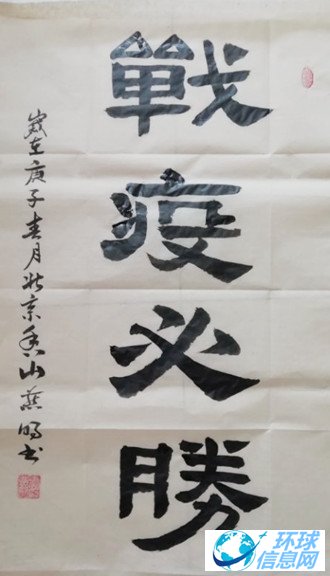 戰疫必勝
歲在庚子春月北京香山燕明书
环球
信息网